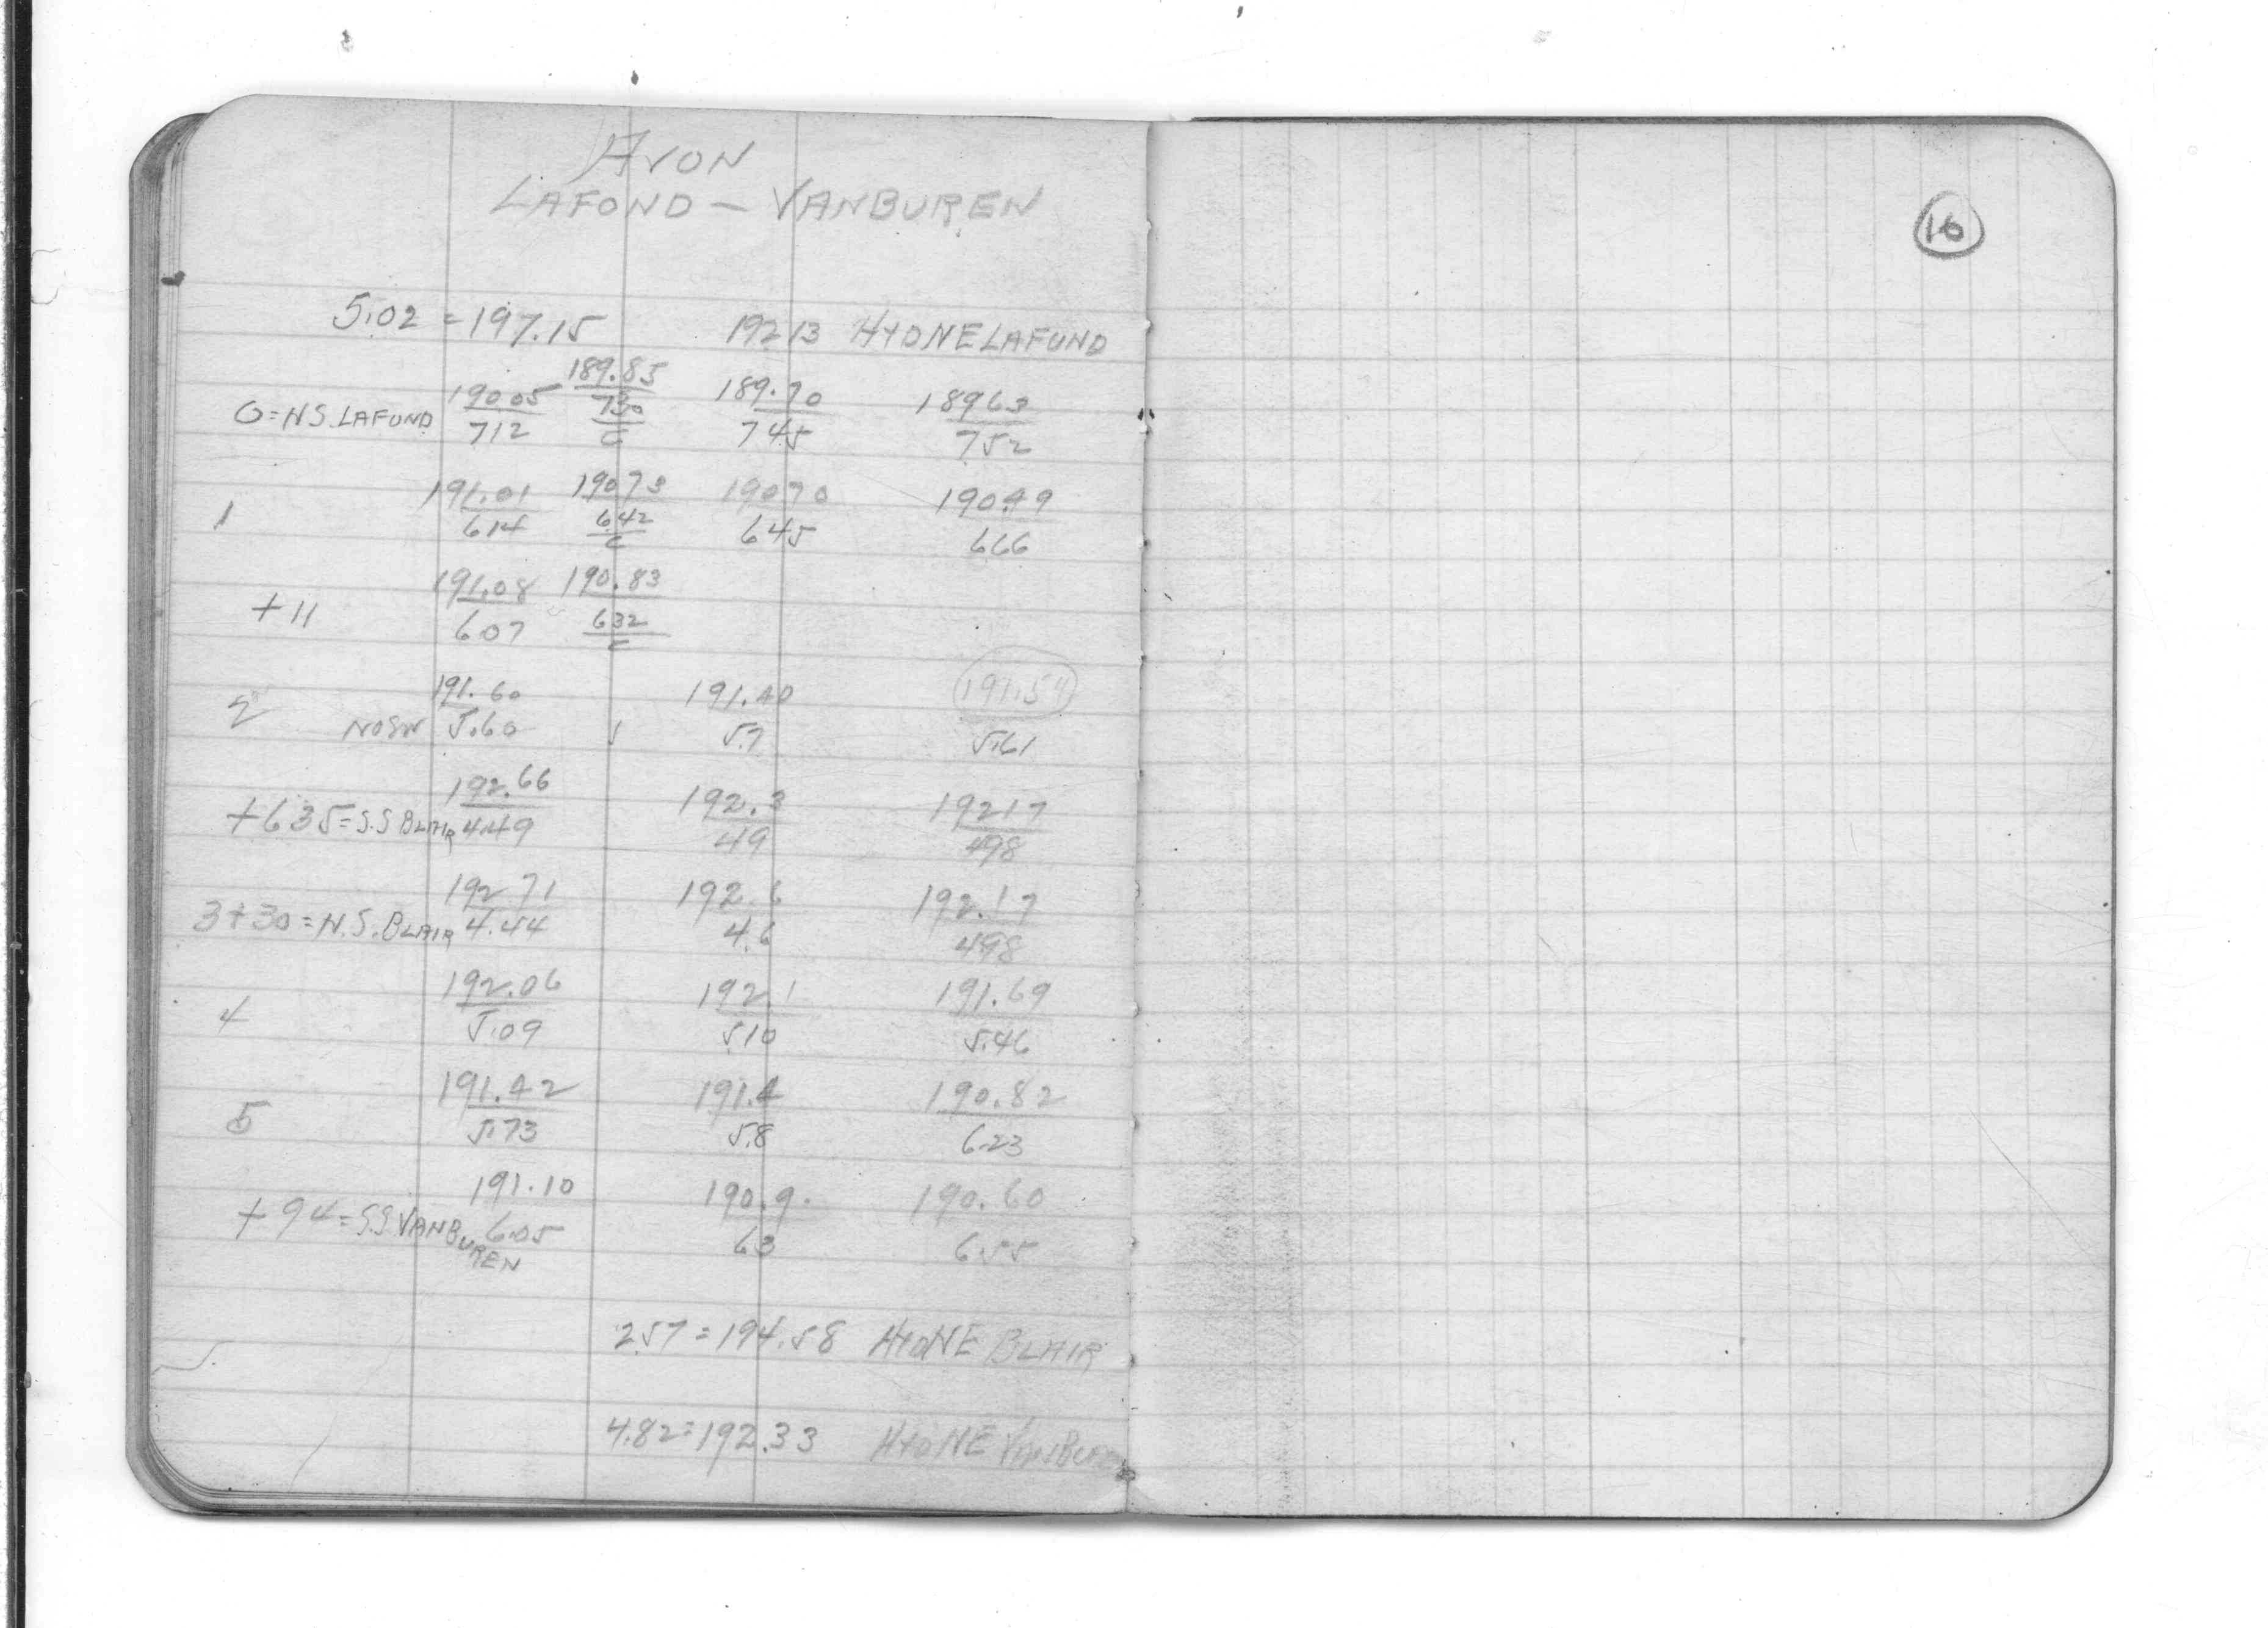 AVON
LAFOND - VANBUREN
16
5.02 = 197.15 192 13 HYD NE LAFOND
189.85
190 05 189.70 189 63
0 = N S. LAFOND 712 730 745 752
C
191.01 190 73 190 70 190.49
1 614 642 645 666
C
191.08 190.83
+ 11 607 632
C
191.60 191.40 191.54
2 NO SW 5.60 5.7 5.61
192.66 192.3 192 17
+ 6 35 = S.S BLAIR 4.49 49 498
192 71 192.6 192.17
3 + 30 = N.S. BLAIR 4.44 4.6 498
192.06 192.1 191.69
4 5.09 5.10 5.46
191.42 191.4 190.82
5 5.73 5.8 6.23
191.10 190.9 190.60
+ 94 = S.S VANBUREN 6.05 63 6.55
2.57 = 194.58 HYD NE BLAIR
4.82 = 192.33 HYD NE VANBUREN